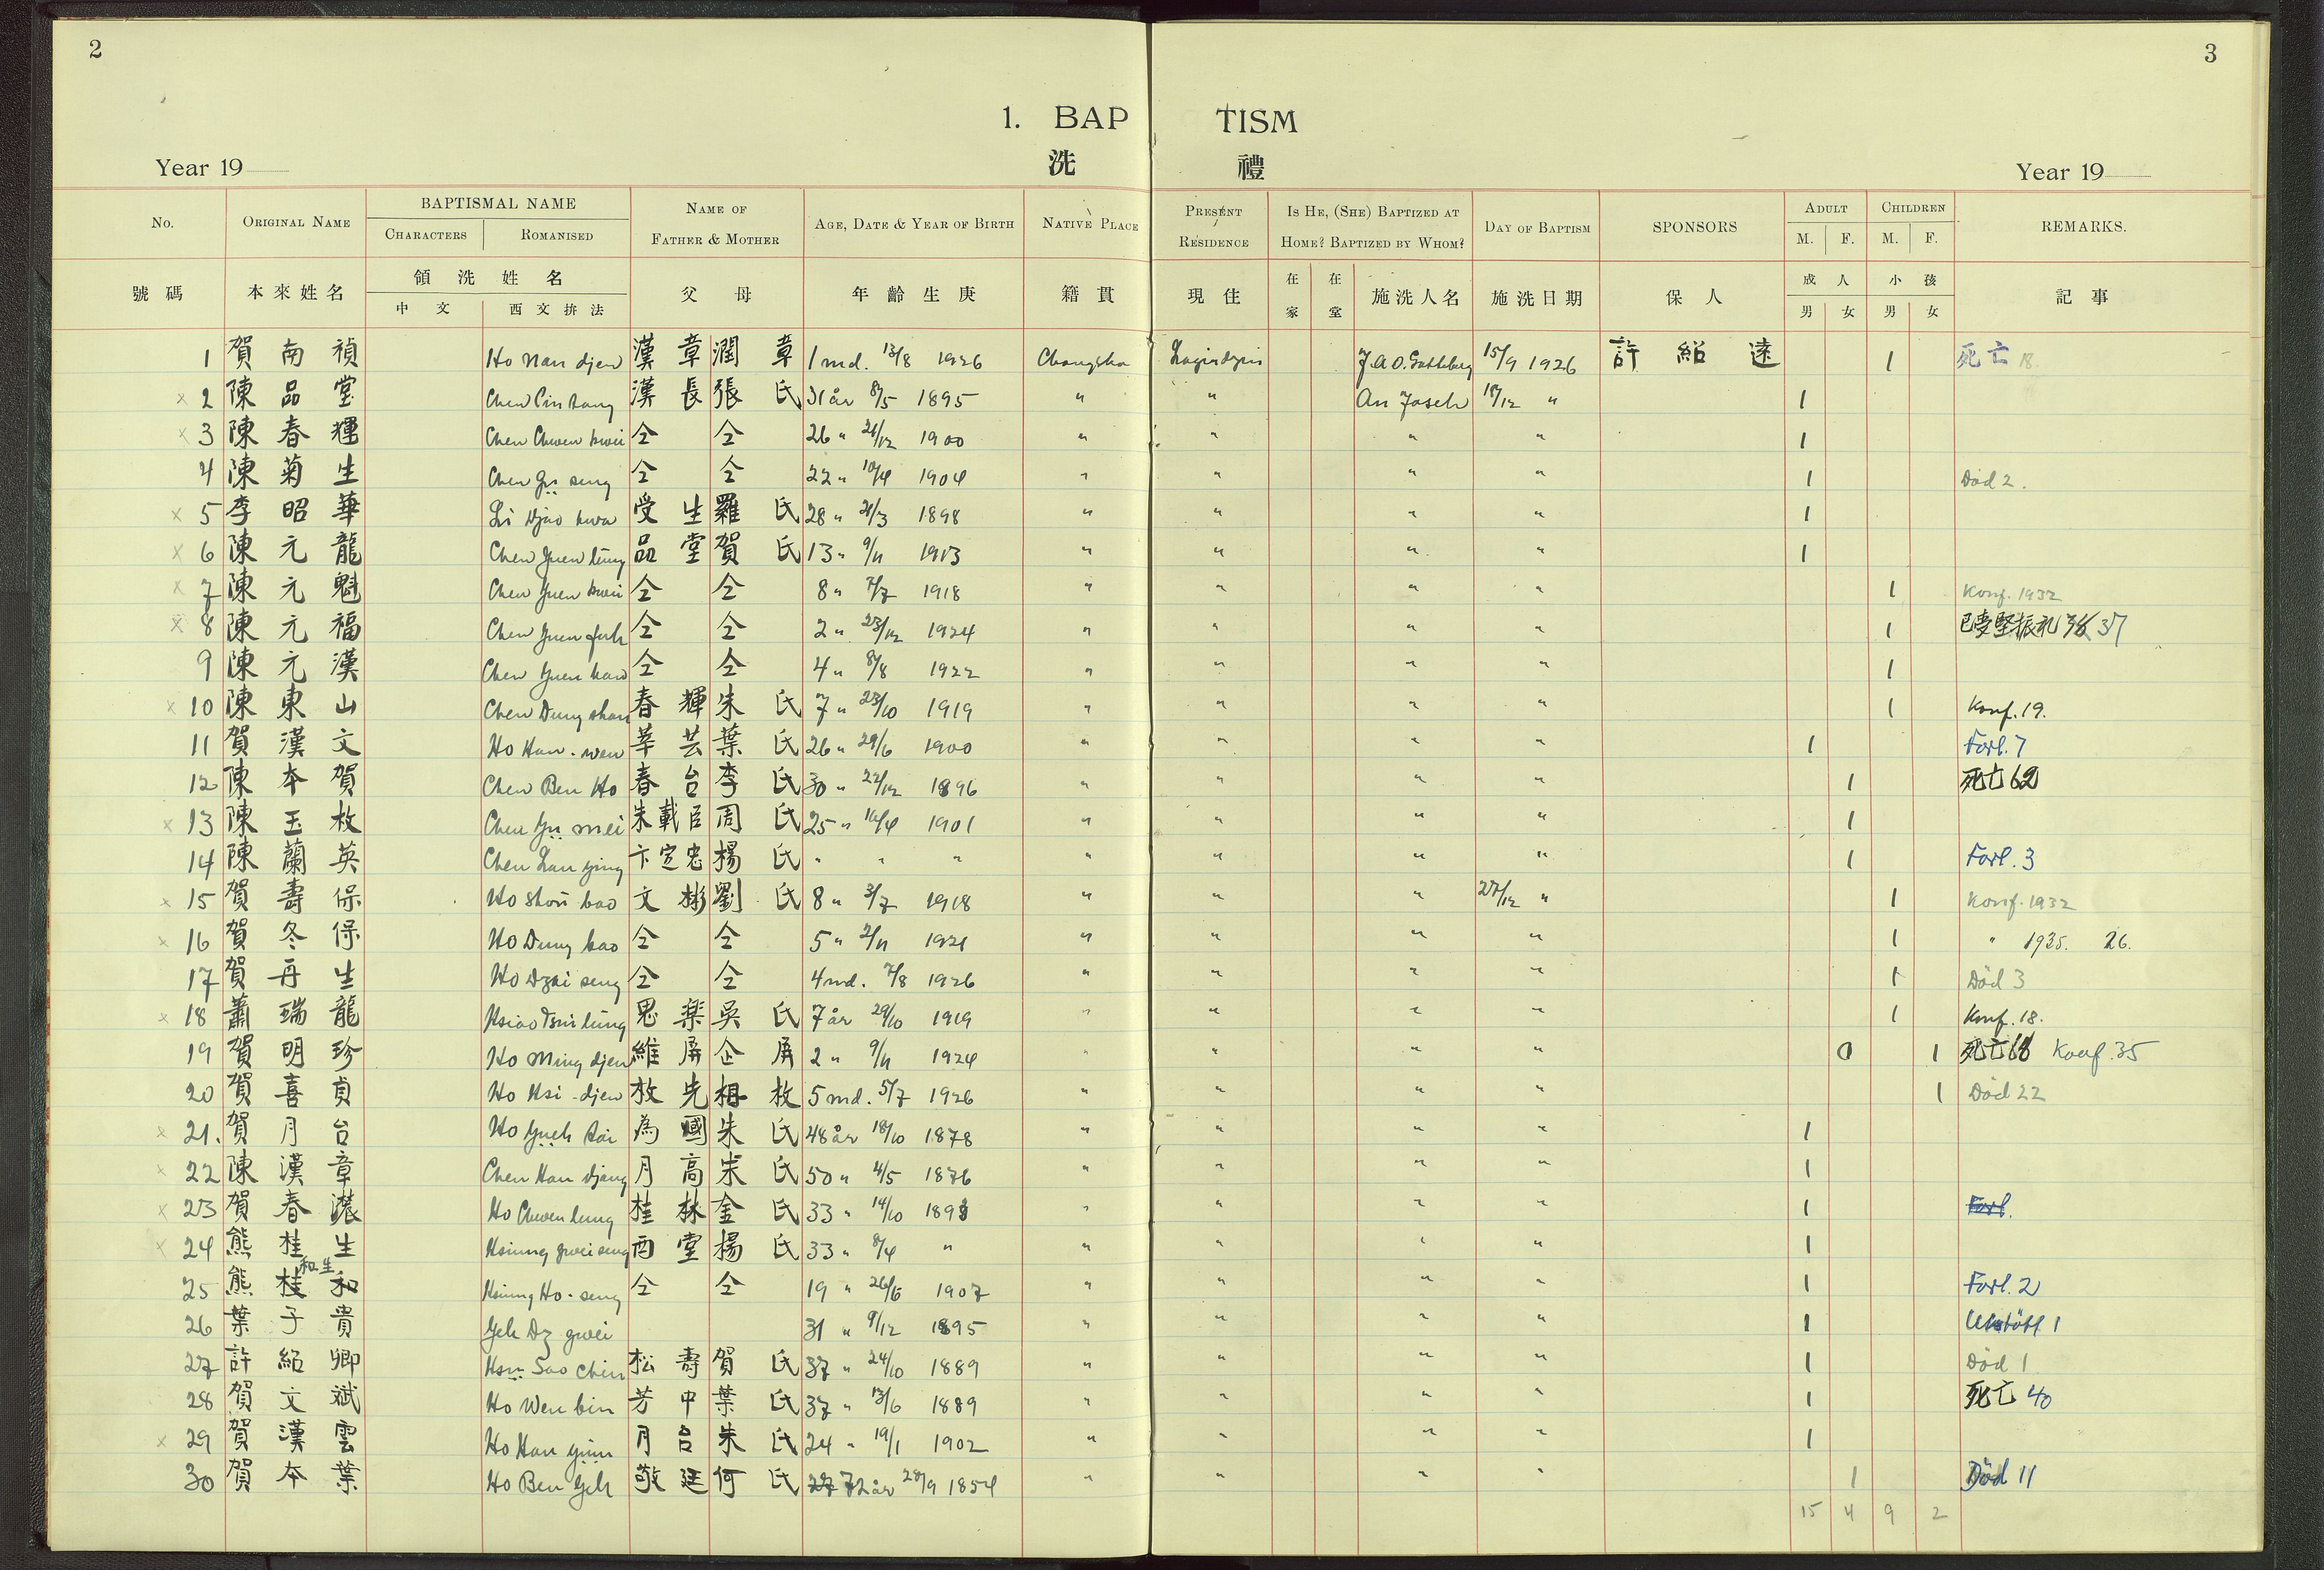 2
3
1. BAP TISM
洗 禮
Year 19
Year 19
No. ORIGINAL NAME BAPTISMAL NAME CHARACTERS ROMANISED NAME OF FATHER & MOTHER AGE, DATE & YEAR OF BIRTH NATIVE PLACE PRESENT RESIDENCE IS HE, (SHE) BAPTIZED AT HOME? BAPTIZED BY WHOM? DAY OF BAPTISM SPONSORS ADULT M. F. CHILDREN M. F. REMARKS.
號碼 本來姓名 領洗姓名 中文 西文拚法 父母 年齡生庚 籍貫 現住 在家 在堂 施洗人名 施洗日期 保人 成人 男 女 小孩 男 女 記事
1 賀南禎 Ho Nan djen 漢章 潤章 1 md. 13/8 1926 Changsha J.A.O. Gottberg 15/9 1926 許紹遠 1 死亡 18.
x 2 陳品堂 Chen Pin tang 漢長 張氏 31 år 8/5 1895 " " An Joseh 18/12 " 1
x 3 陳春輝 Chen Chwen hwei 仝 仝 26 " 21/12 1900 " " " " 1
4 陳菊生 Chen Gü seng 仝 仝 22 " 10/4 1904 " " " " 1 Död 2.
x 5 李昭華 Li Djao hwa 受生 羅氏 28 " 21/3 1898 " " " " 1
x 6 陳元龍 Chen Yuen lung 品堂 賀氏 13 " 9/11 1913 " " " " 1
x 7 陳元魁 Chen Yuen kwei 仝 仝 8 " 7/7 1918 " " " " 1 Konf. 1932
x 8 陳元福 Chen Yuen fuh 仝 仝 2 " 23/12 1924 " " " " 1 已受堅振礼 37
9 陳元漢 Chen Yuen han 仝 仝 4 " 8/8 1922 " " " " 1
x 10 陳東山 Chen Dung shan 春輝 朱氏 7 " 23/10 1919 " " " " 1 Konf. 19.
11 賀漢文 Ho Han-wen 莘芸 葉氏 26 " 29/6 1900 " " " " 1 Forl. 7
12 陳本賀 Chen Ben Ho 春台 李氏 30 " 22/12 1896 " " " " 1 死亡 62
x 13 陳玉枚 Chen Yü mei 朱載臣 周氏 25 " 16/4 1901 " " " " 1
14 陳蘭英 Chen Lan ying 卞定忠 楊氏 " " " " " " " 1 Forl. 3
x 15 賀壽保 Ho Shou bao 文彬 劉氏 8 " 3/7 1918 " " " 27/12 " 1 Konf. 1932
x 16 賀冬保 Ho Dung bao 仝 仝 5 " 2/11 1921 " " " " 1 " 1935. 26.
17 賀再生 Ho Dzai seng 仝 仝 4 md. 7/8 1926 " " " " 1 Död 3
x 18 蕭瑞龍 Hsiao Tsui lung 思楽 吳氏 7 år 29/10 1919 " " " " 1 Konf. 18.
19 賀明珍 Ho Ming djen 維屏 企屏 2 " 9/11 1924 " " " " 0 1 死亡 68 Konf. 35
20 賀喜貞 Ho Hsi-djen 枚先 相枚 5 md. 5/7 1926 " " " " 1 Död 22
x 21. 賀月台 Ho Yueh tai 為國 朱氏 48 år 18/10 1878 " " " " 1
x 22 陳漢章 Chen Han djang 月高 朱氏 50 " 4/5 1876 " " " " 1
x 23 賀春濃 Ho Chwen lung 桂林 金氏 33 " 14/10 1893 " " " " 1 Forl.
x 24 熊桂生 Hsiung gwei seng 酉堂 楊氏 33 " 8/4 " " " " " 1
和生
25 熊桂和 Hsiung Ho-seng 仝 仝 19 " 26/6 1907 " " " " 1 Forl. 2
26 葉子貴 Yeh Dz gwei 31 " 9/12 1895 " " " " 1 Utstött 1
27 許紹卿 Hsü Sao chin 松壽 賀氏 37 " 24/10 1889 " " " " 1 Död 1
28 賀文斌 Ho Wen bin 芳中 葉氏 37 " 13/6 1889 " " " " 1 死亡 40
x 29 賀漢雲 Ho Han yün 月台 朱氏 24 " 19/1 1902 " " " " 1
30 賀本葉 Ho Ben Yeh 敬廷 何氏 72 år 28/9 1854 " " " " 1 Död 11
15 4 9 2